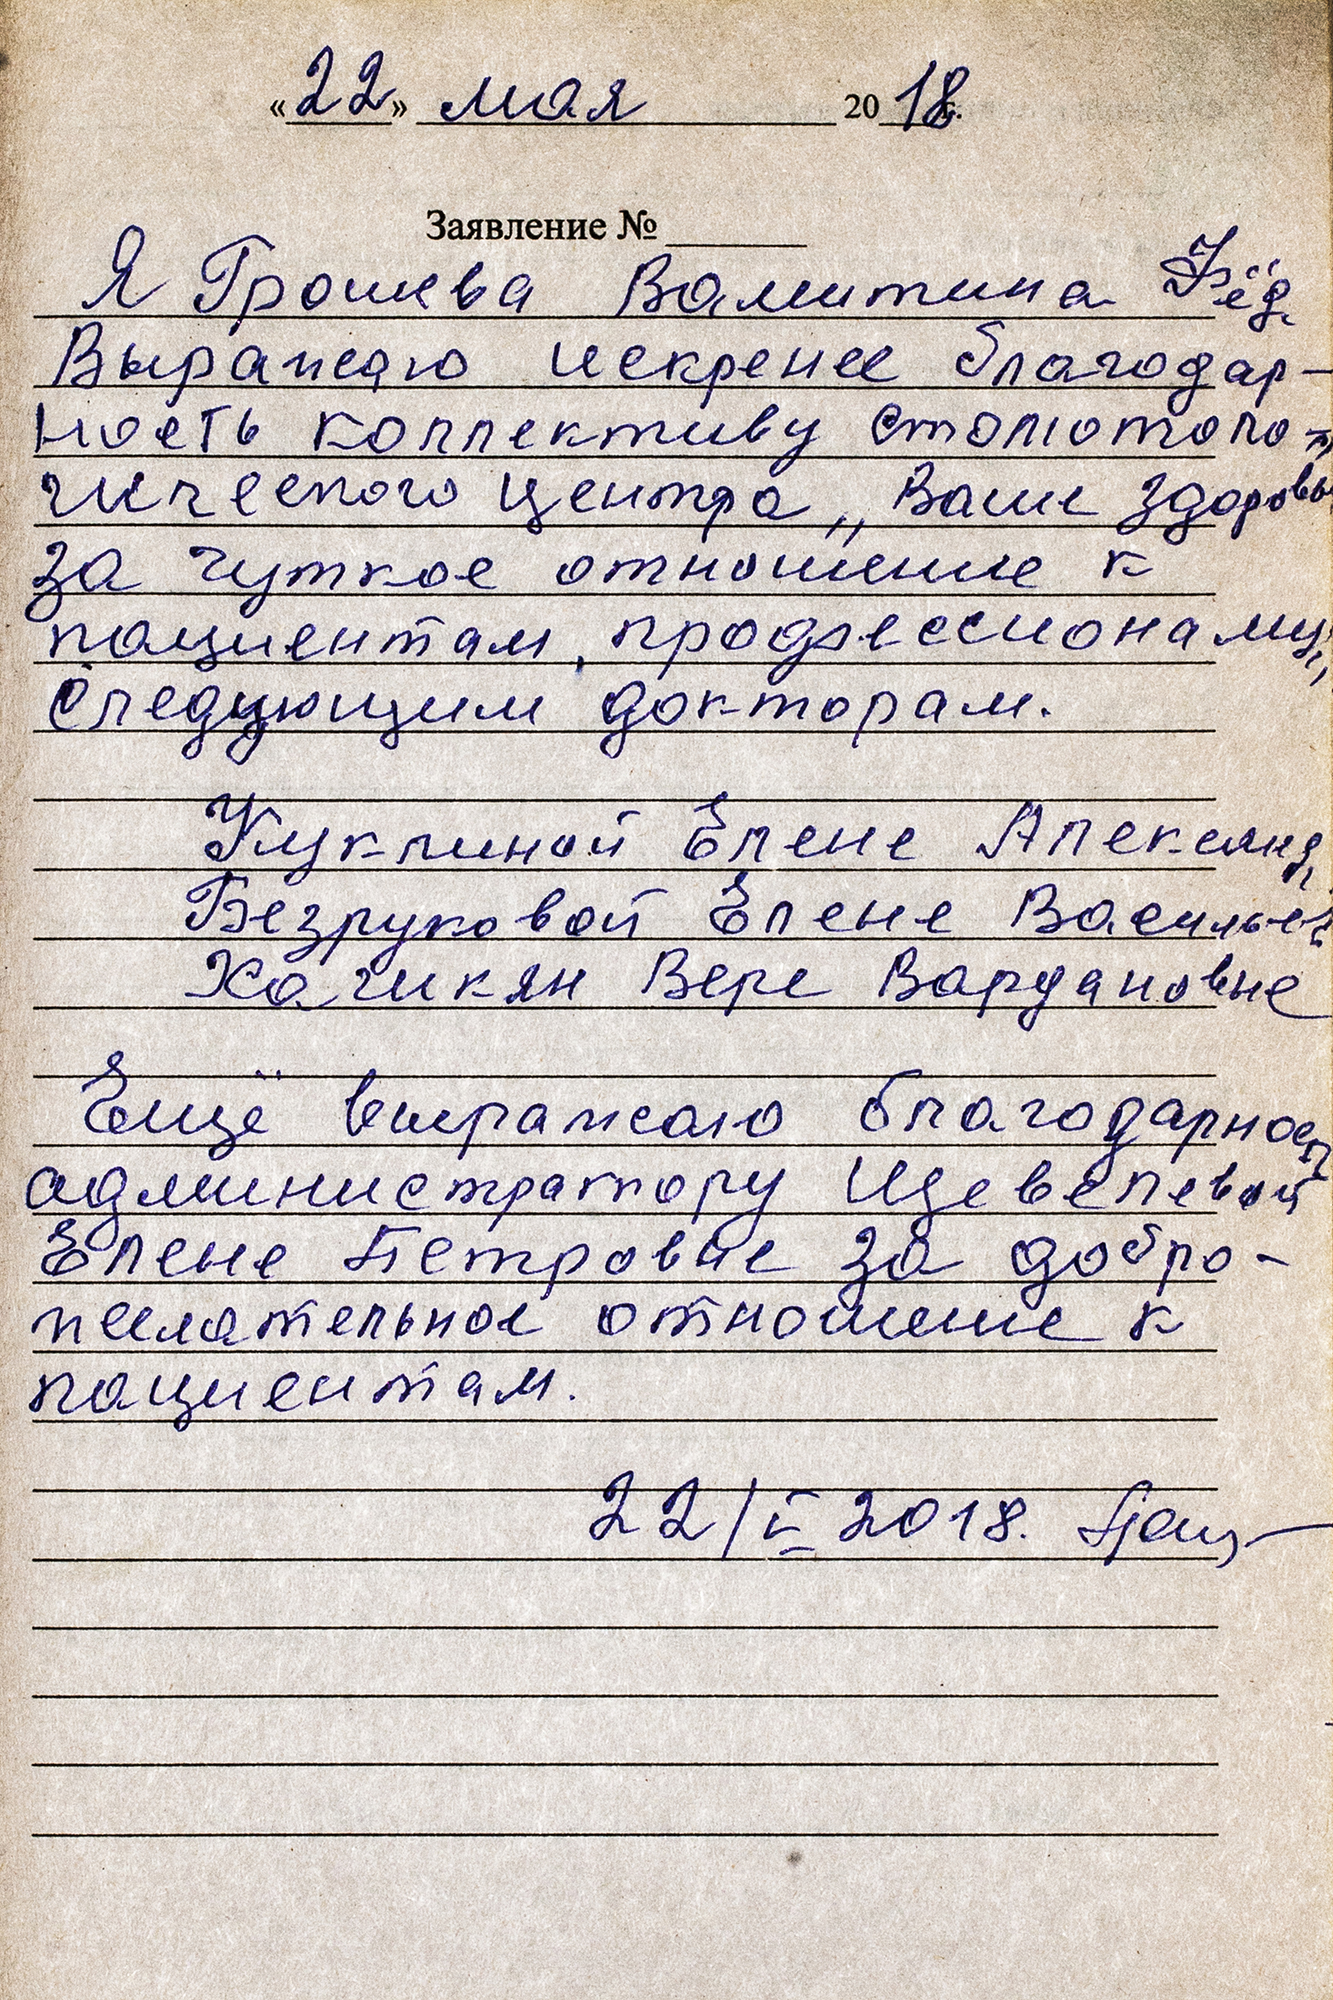 «22» мая 2018 г.
Заявление №
Я Грошева Валентина Фёд.
Выражаю искренее благодар-
ность коллективу стоматоло-
гического центра „Ваше здоровье
за чуткое отношение к
пациентам,
следующим докторам.
Куклиной Елене Александ.
Безруковой Елене Василье
Хачикян Вере Вардановне
Ещё выражаю благодарность
администратору Щевелевой
Елене Петровне за добро-
желательное отношение к
пациентам.
22/V 2018.